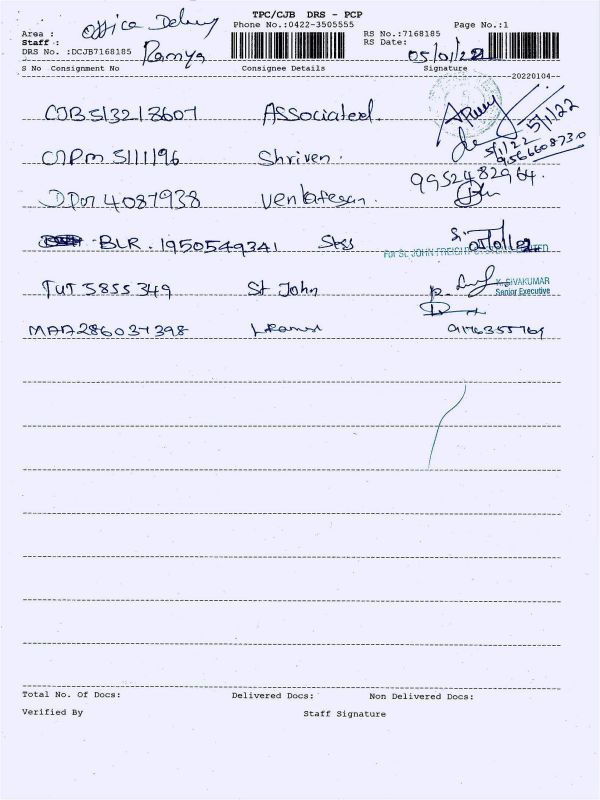 TPC/CJB DRS - PCP
Area : Office Delivery Phone No.:0422-3505555 Page No.:1
Staff : Ramya RS No.:7168185
DRS No. :DCJB7168185 RS Date: 05/01/22
S No Consignment No Consignee Details Signature
--20220104--
CJB 513218607 Associated.
5/1/22
5/1/22
9566608730
CJPM 511196 Shriven.
9952482964.
4087938 Venkatesan.
BLR. 1950549341 Stss 05/01/22
For St. JOHN FREIGHT SYSTEMS LIMITED
TUT 5855349 St John
K. SIVAKUMAR
Senior Executive
MAA286037398 9176355764
Total No. Of Docs: Delivered Docs: Non Delivered Docs:
Verified By Staff Signature